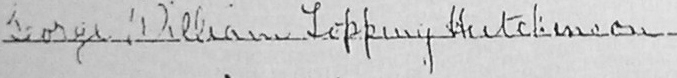 George William Topping Hutchinson